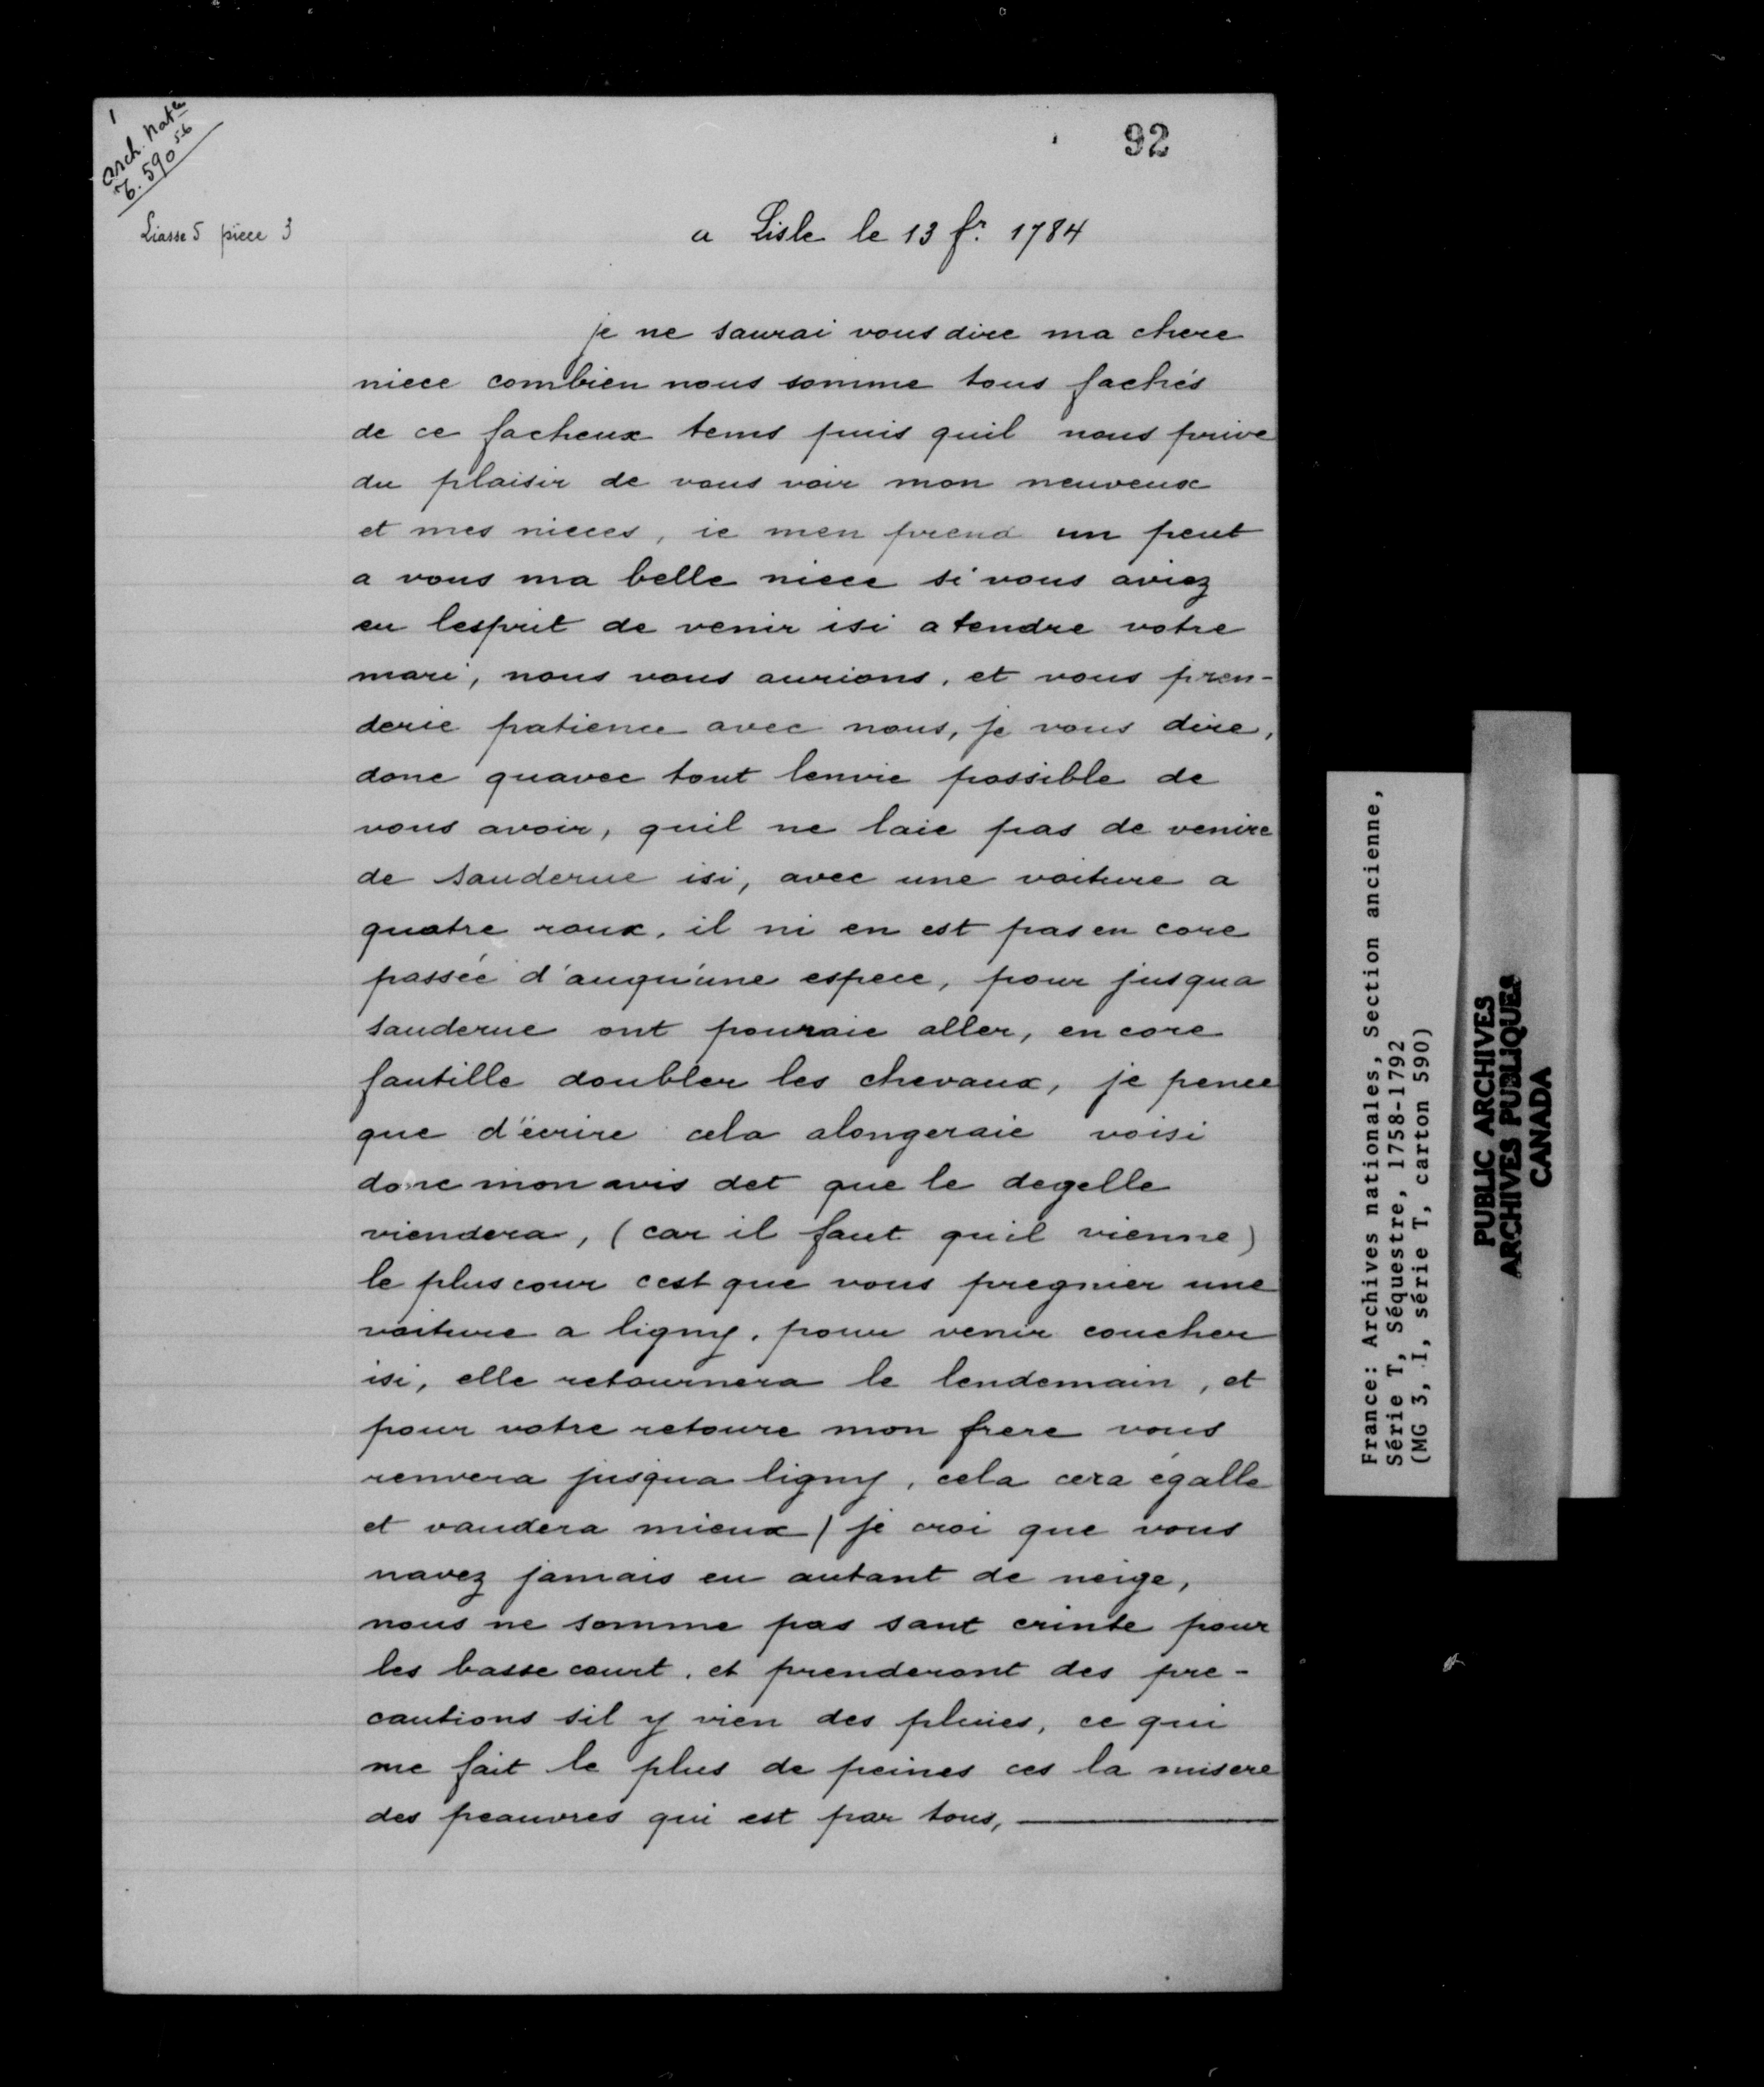 1
Arch. Nat les
T. 590 5-6
92
Liasse 5 piece 3
a Lisle le 13 fr. 1784
je ne saurai vous dire ma chere
niece combien nous somme tous fachés
de ce facheux tems puis quil nous prive
du plaisir de vous voir mon neuveux
et mes nieces, ie men prend un peut
a vous ma belle niece si vous aviez
eu lesprit de venir isi atendre votre
mari, nous vous aurions, et vous pren-
derie patience avec nous, je vous dire,
donc quavec tout lenvie possible de
vous avoir, quil ne laie pas de venire
de sauderue isi, avec une voiture a
quatre roux, il ni en est pas en core
passée d'auqu'une espece, pour jusqua
sauderue ont pouraie aller, en core
fautille doubler les chevaux, je pence
que d'écrire cela alongeraie voisi
donc mon avis det que le degelle
viendera, (car il faut quil vienne)
le plus cour cest que vous pregnier une
voiture a ligny, pour venir coucher
isi, elle retournera le lendemain, et
pour votre retoure mon frere vous
renvera jusqua ligny, cela cera égalle
et vaudera mieux) je croi que vous
navez jamais eu autant de neige,
nous ne somme pas sant crinte pour
les basse court, et prenderont des pre-
cautions sil y vien des pluies, ce qui
me fait le plus de peines ces la misere
des peauvres qui est par tous,
France: Archives nationales, Section ancienne,
Série T, Séquestre, 1758-1792
(MG 3, I, série T, carton 590)
PUBLIC ARCHIVES
ARCHIVES PUBLIQUES
CANADA